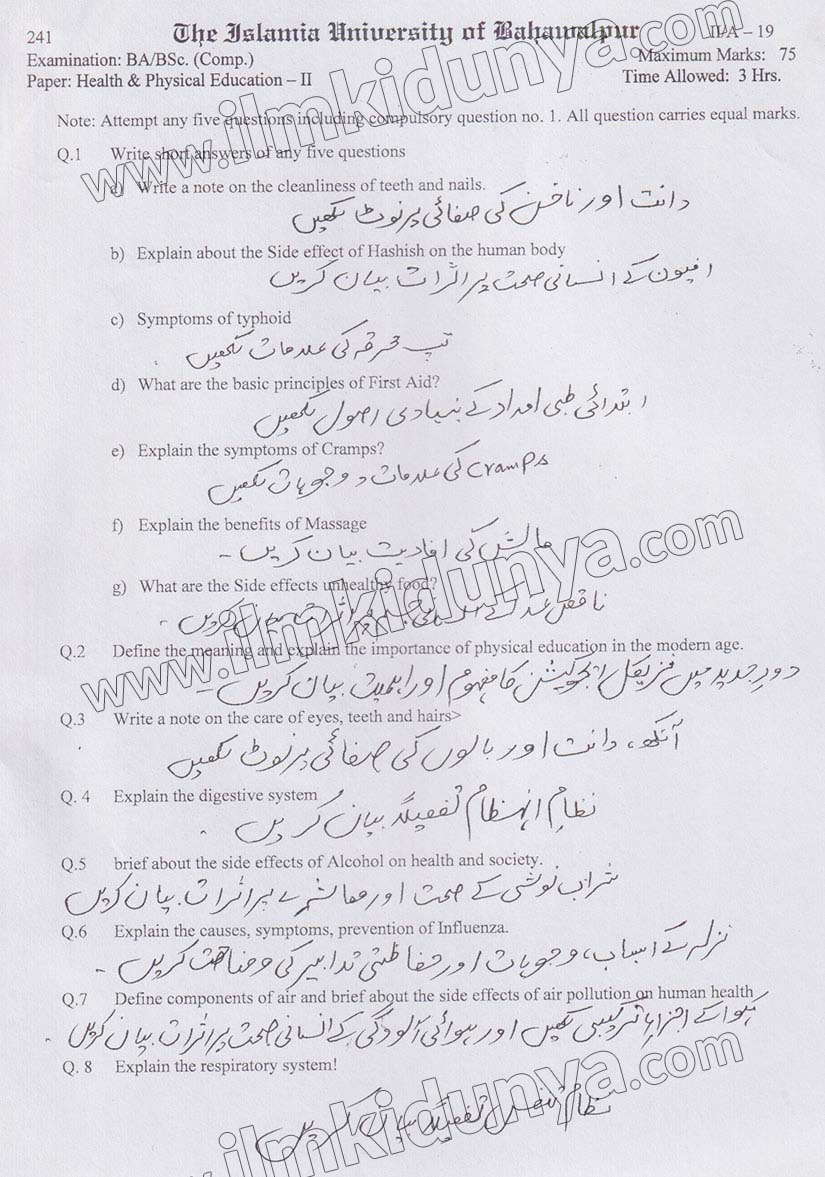 241
The Islamia University of Bahawalpur
II/A – 19
Examination: BA/BSc. (Comp.)
Maximum Marks: 75
Paper: Health & Physical Education – II
Time Allowed: 3 Hrs.
Note: Attempt any five questions including compulsory question no. 1. All question carries equal marks.
Q.1 Write short answers of any five questions
a) Write a note on the cleanliness of teeth and nails.
دانت اور ناخن کی صفائی پر نوٹ لکھیں
b) Explain about the Side effect of Hashish on the human body
افیون کے انسانی صحت پر اثرات بیان کریں
c) Symptoms of typhoid
تپ محرقہ کی علامات لکھیں
d) What are the basic principles of First Aid?
ابتدائی طبی امداد کے بنیادی اصول لکھیں
e) Explain the symptoms of Cramps?
Cramps کی علامات و وجوہات لکھیں
f) Explain the benefits of Massage
مالش کی افادیت بیان کریں -
g) What are the Side effects unhealthy food?
ناقص بیان کریں
Q.2 Define the meaning and explain the importance of physical education in the modern age.
دورِ جدید میں فزیکل ایجوکیشن کا مفہوم اور اہمیت بیان کریں -
Q.3 Write a note on the care of eyes, teeth and hairs>
آنکھ، دانت اور بالوں کی صفائی پر نوٹ لکھیں
Q. 4 Explain the digestive system
نظامِ انہظام تفصیلاً بیان کریں -
Q.5 brief about the side effects of Alcohol on health and society.
شراب نوشی کے صحت اور معاشرے پر اثرات بیان کریں
Q.6 Explain the causes, symptoms, prevention of Influenza.
نزلہ کے اسباب، وجوہات اور حفاظتی تدابیر کی وضاحت کریں -
Q.7 Define components of air and brief about the side effects of air pollution on human health
ہوا کے اجزاء ترکیبی لکھیں اور ہوائی آلودگی کے انسانی صحت پر اثرات بیان کریں
Q. 8 Explain the respiratory system!
نظام تنفس تفصیلاً بیان کریں
www.ilmkidunya.com
www.ilmkidunya.com
www.ilmkidunya.com